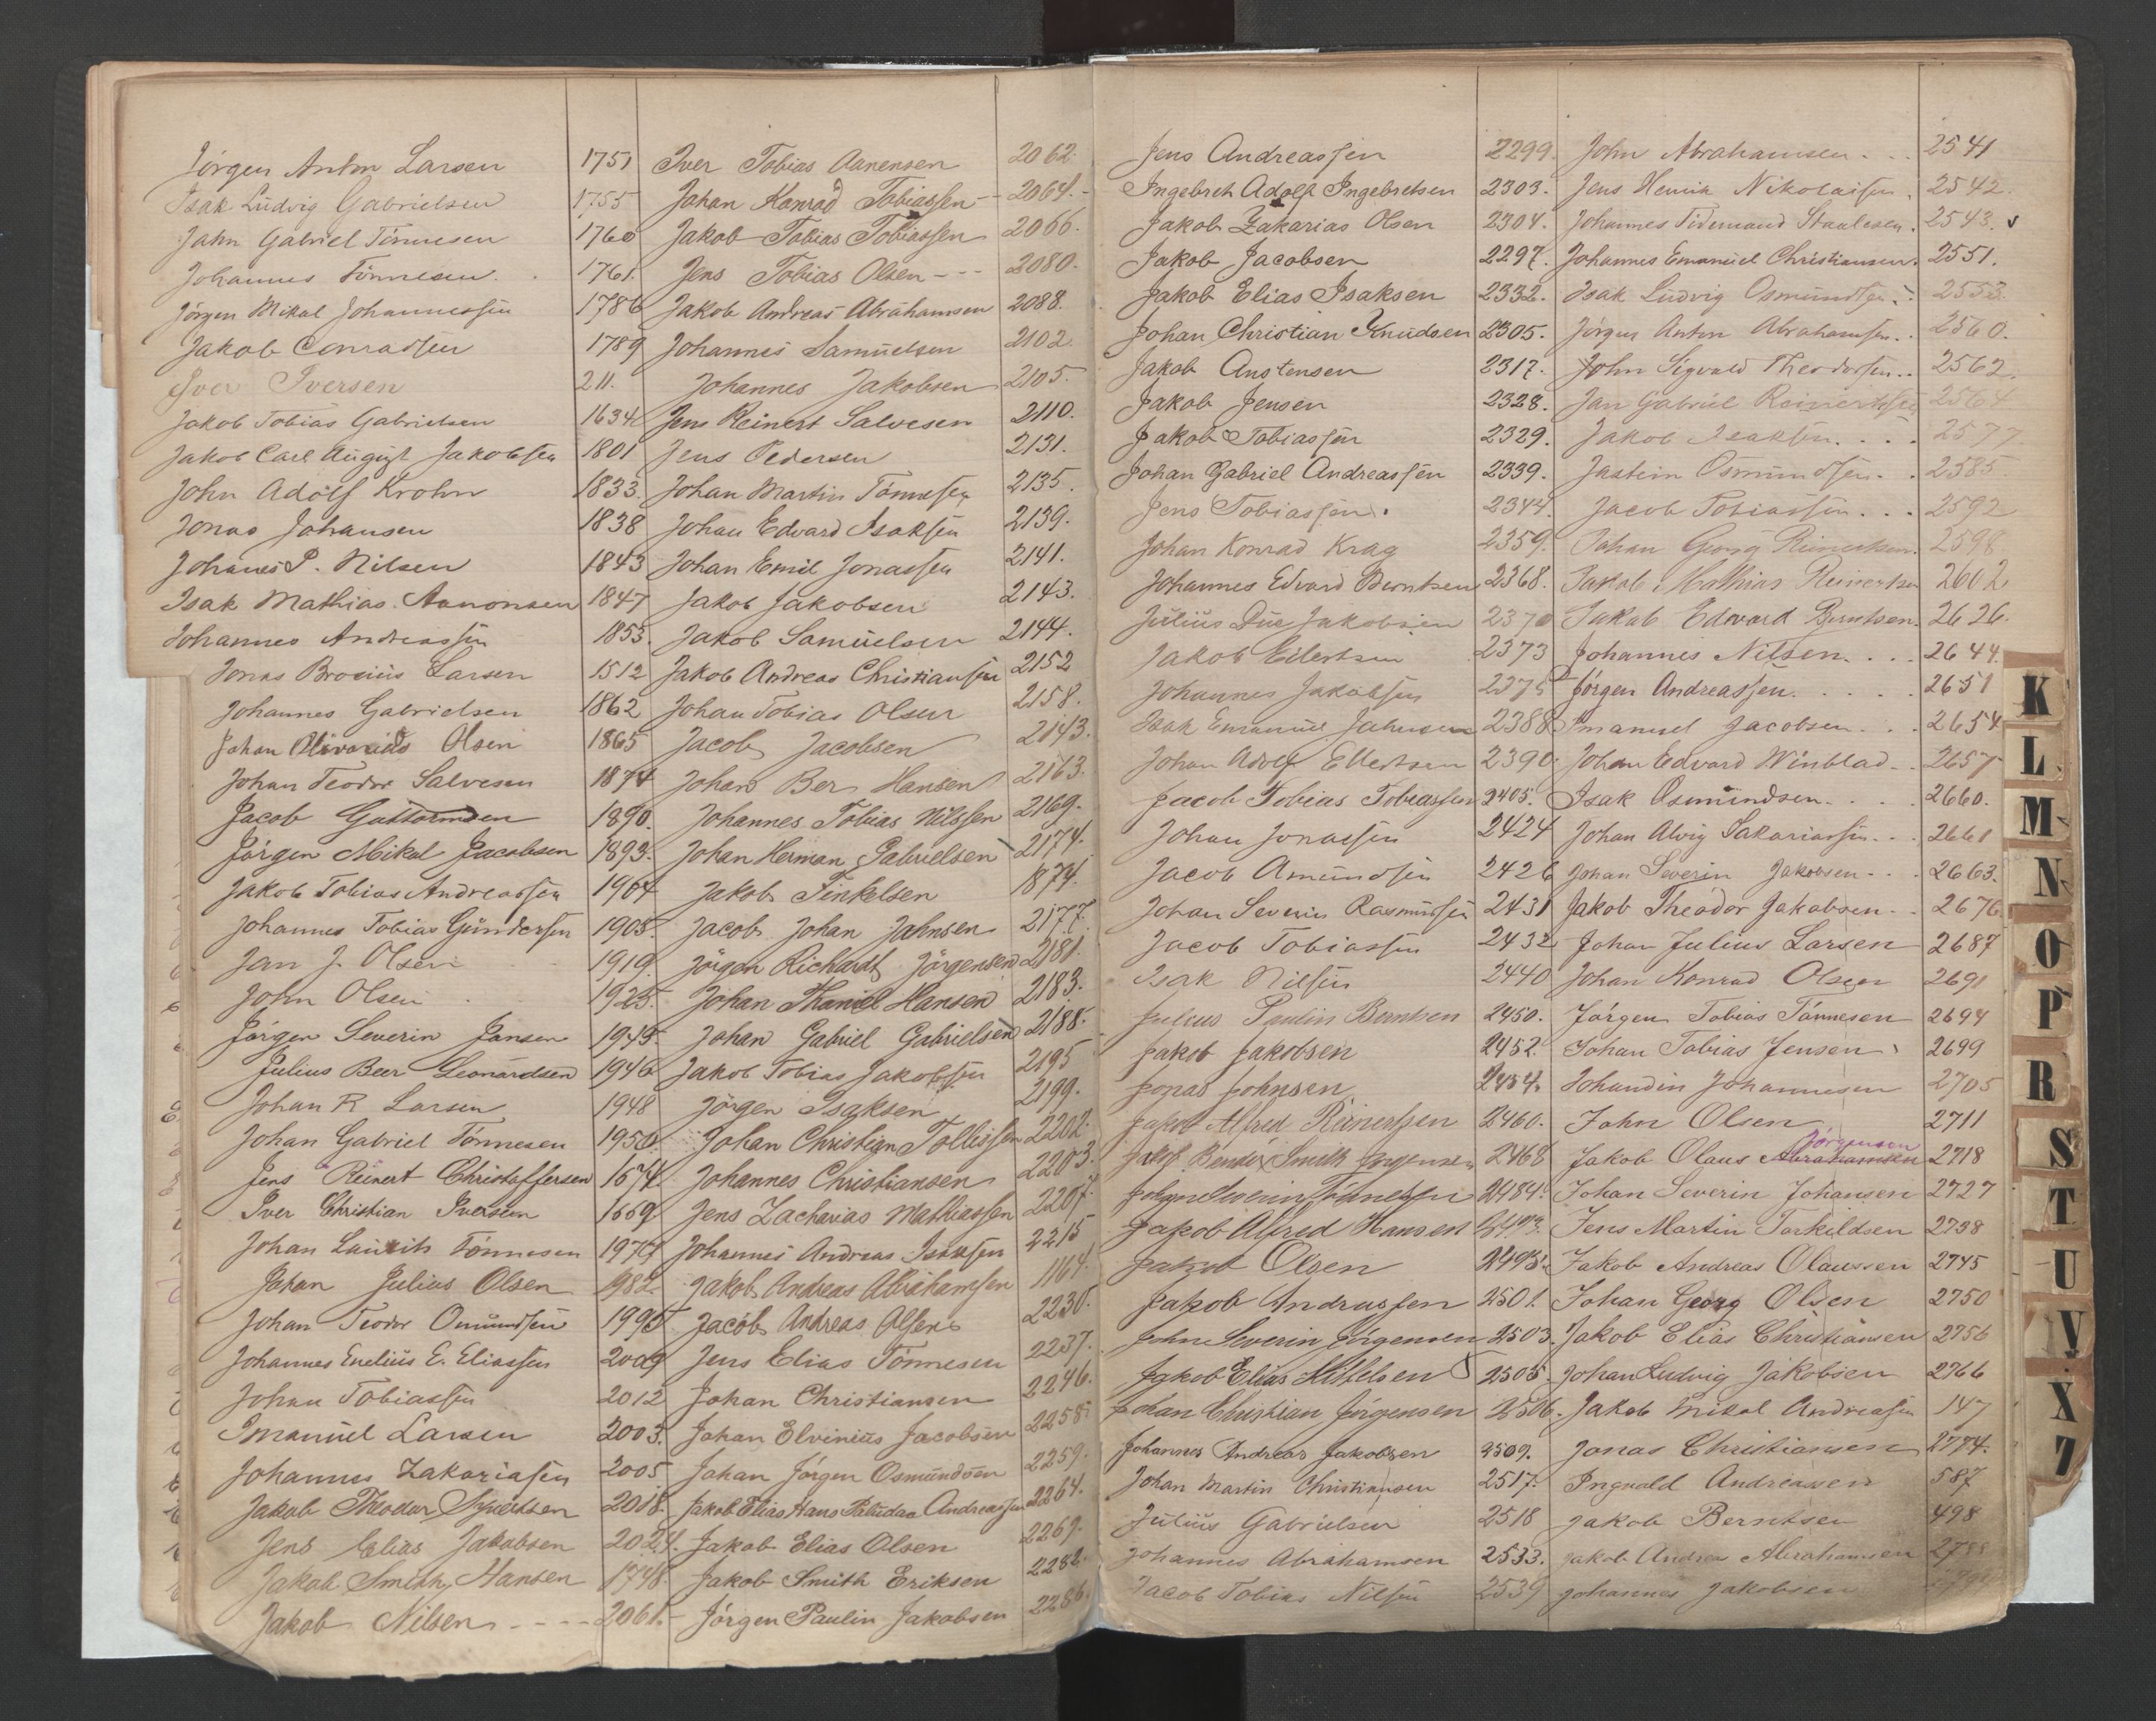 Jörgen Anton Larsen 1751
Isak Ludvig Gabrielsen 1755
Jahn Gabriel Tönnesen 1760
Johannes Tönnesen 1761.
Jörgen Mikal Johannessen 1786
Jakob Conradsen 1789
Iver Iversen 211.
Jakob Tobias Gabrielsen 1634
Jakob Carl August Jakobsen 1801
John Adolf Krohn 1833.
Jonas Johansen 1838
Johanes P. Nilsen 1843
Isak Mathias Aanonsen 1847
Johannes Andreassen 1853.
Jonas Brosius Larsen 1512
Johannes Gabrielsen 1862
Johan Olsen 1865
Johan Teodor Salvesen 1874
Jacob Guttormsen 1890.
Jörgen Mikal Jacobsen 1893.
Jakob Tobias Andreassen 1904
Johannes Tobias Gundersen 1905.
Jan J. Olsen 1919.
John Olsen 1925.
Jörgen Severin Jansen 1945.
Julius Beer Leonardsen 1946
Johan R Larsen 1948
Johan Gabriel Tönnesen 1950
Jens Reinert Christoffersen 1674
Iver Christian Iversen 1669
Johan Lauritz Tönnesen 1979
Johan Julius Olsen 1982.
Johan Teodor Omundsen 1995
Johannes Enelius E. Eliassen 2009
Johan Tobiassen 2012
Imanuel Larsen 2003.
Johannes Zakariasen 2005
Jakob Theodor Syvertsen 2018.
Jens Elias Jakobsen 2024.
Jakob Smith Hansen 1748
Jakob Nilsen - - - 2061.
Iver Tobias Aanensen 2062.
Johan Konrad Tobiassen - 2064.-
Jakob Tobias Tobiassen 2066.
Jens Tobias Olsen - - - 2080.
Jakob Andreas Abrahamsen 2088.
Johannes Samuelsen 2102.
Johannes Jakobsen 2105.
Jens Reinert Salvesen 2110.
Jens Pedersen 2131.
Johan Martin Tönnesen 2135.
Johan Edvard Isaksen 2139.
Johan Emil Jonassen 2141.
Jakob Jakobsen 2143.
Jakob Samuelsen 2144.
Jakob Andreas Christiansen 2152
Johan Tobias Olsen 2158.
Jacob Jacobsen
Johan Ber Hansen 2163.
Johannes Tobias Nilssen 2169.
Johan Herman Gabrielsen 2174.
Jakob Tinkelsen 1874.
Jacob Johan Jahnsen 2177.
Jörgen Richardt Jörgensen 2181.
Johan Thaniel Hansen 2183.
Johan Gabriel Gabrielsen 2188.
Jakob Tobias Jakobsen 2195
Jörgen Isaksen 2199.
Johan Christian Tollissen 2202.
Johannes Christiansen 2203.
Jens Zacharias Mathiassen 2207.
Johannes Andreas Isaksen 2215
Jakob Andreas Abrahamsen 1164.
Jacob Andreas Olsen 2230.
Jens Elias Tönnesen 2237.
Johan Christiansen 2246.
Johan Elvinius Jacobsen 2258.
Johan Jörgen Osmundsen 2259.
Jakob Elias Hans Paludan Andreassen 2264.
Jakob Elias Olsen 2269.
Jakob Smith Eriksen 2282.
Jörgen Paulin Jakobsen 2286.
Jens Andreassen 2299.
Ingebret Adolf Ingebretsen 2303.
Jakob Zakarias Olsen 2304.
Jakob Jacobsen 2297.
Jakob Elias Isaksen 2332.
Johan Christian Knudsen 2305.
Jakob Austensen 2317.
Jakob Jensen 2328.
Jakob Tobiassen 2329.
Johan Gabriel Andreassen 2339.
Jens Tobiassen. 2344.
Johan Konrad Krag 2359.
Johannes Edvard Berntsen 2368.
Julius Due Jakobsen 2370
Jakob Eilertsen 2373
Johannes Jakobsen 2375
Isak Emanuel Jahnsen 2388
Johan Adolf Ellertsen 2390.
Jacob Tobias Tobiassen 2405.
Johan Jonassen 2424
Jacob Amundsen 2426
Johan Severin Rasmussen 2431
Jacob Tobiassen 2432
Isak Nilsen 2440
Julius Paulin Berntsen 2450.
Jakob Jakobsen 2452.
Jonas Johnsen 2454.
Jakob Alfred Reinertsen 2460.
Jakob Bendix Smith Jörgensen 2468
Severin Tönnessen 2484.
Jakob Alfred Hansen
Jakob Olsen 2498.
Jakob Andreassen 2501.
John Severin Jörgensen 2503.
Jakob Elias Kittelsen 2505.
Johan Christian Jörgensen 2506.
Johannes Andreas Jakobsen 2509.
Johan Martin Christiansen 2517.
Julius Gabrielsen 2518
Johannes Abrahamsen 2533.
Jacob Tobias Nilsen 2539
John Abrahamsen . . . 2541
Jens Henrik Nikolaisen . 2542.
Johannes Tidemand Staalesen . 2543. v
Johannes Emanuel Christiansen. 2551.
Isak Ludvig Osmundsen . 2553.
Jörgen Anton Abrahamsen . . 2560.
John Sigvald Theodorsen . . 2562.
Jan Gabriel Reinertsen 2564
Jakob Isaksen . . . . 2577
Jastein Osmundsen . . 2585
Jacob Tobiassen . . . 2592
Johan Georg Reinertsen. 2598.
Jakob Mathias Reinertsen 2602
Jakob Edvard Berntsen. 2626.
Johannes Nilsen. . . . 2644.
Jörgen Andreassen. . . . . 2651
Imanuel Jacobsen . . . 2654
Johan Edvard Winblad . . 2657
Isak Osmundsen . . . . 2660.
Johan Alvig Sakariassen . . . 2661
Johan Severin Jakobsen . . . 2663.
Jakob Theodor Jakobsen . . 2676
Johan Julius Larsen 2687
Johan Konrad Olsen 2691
Jörgen Tobias Tönnesen 2694
Johan Tobias Jensen 2699
Johandin Johannesen 2705
John Olsen 2711
Jörgensen
Jakob Olaus Abrahamsen 2718
Johan Severin Johansen 2727
Jens Martin Torkildsen 2738
Jakob Andreas Olaussen 2745
Johan Georg Olsen 2750
Jakob Elias Christiansen 2756
Johan Ludvig Jakobsen 2766
Jakob Mikal Andreasen 147
Jonas Christiansen 2774.
Ingvald Andreassen 587
Jakob Berntsen 498
Jakob Andrea Abrahamsen
Johannes Jakobsen
K
L
M
N
O
P
R
S
T
U
V
X
Z